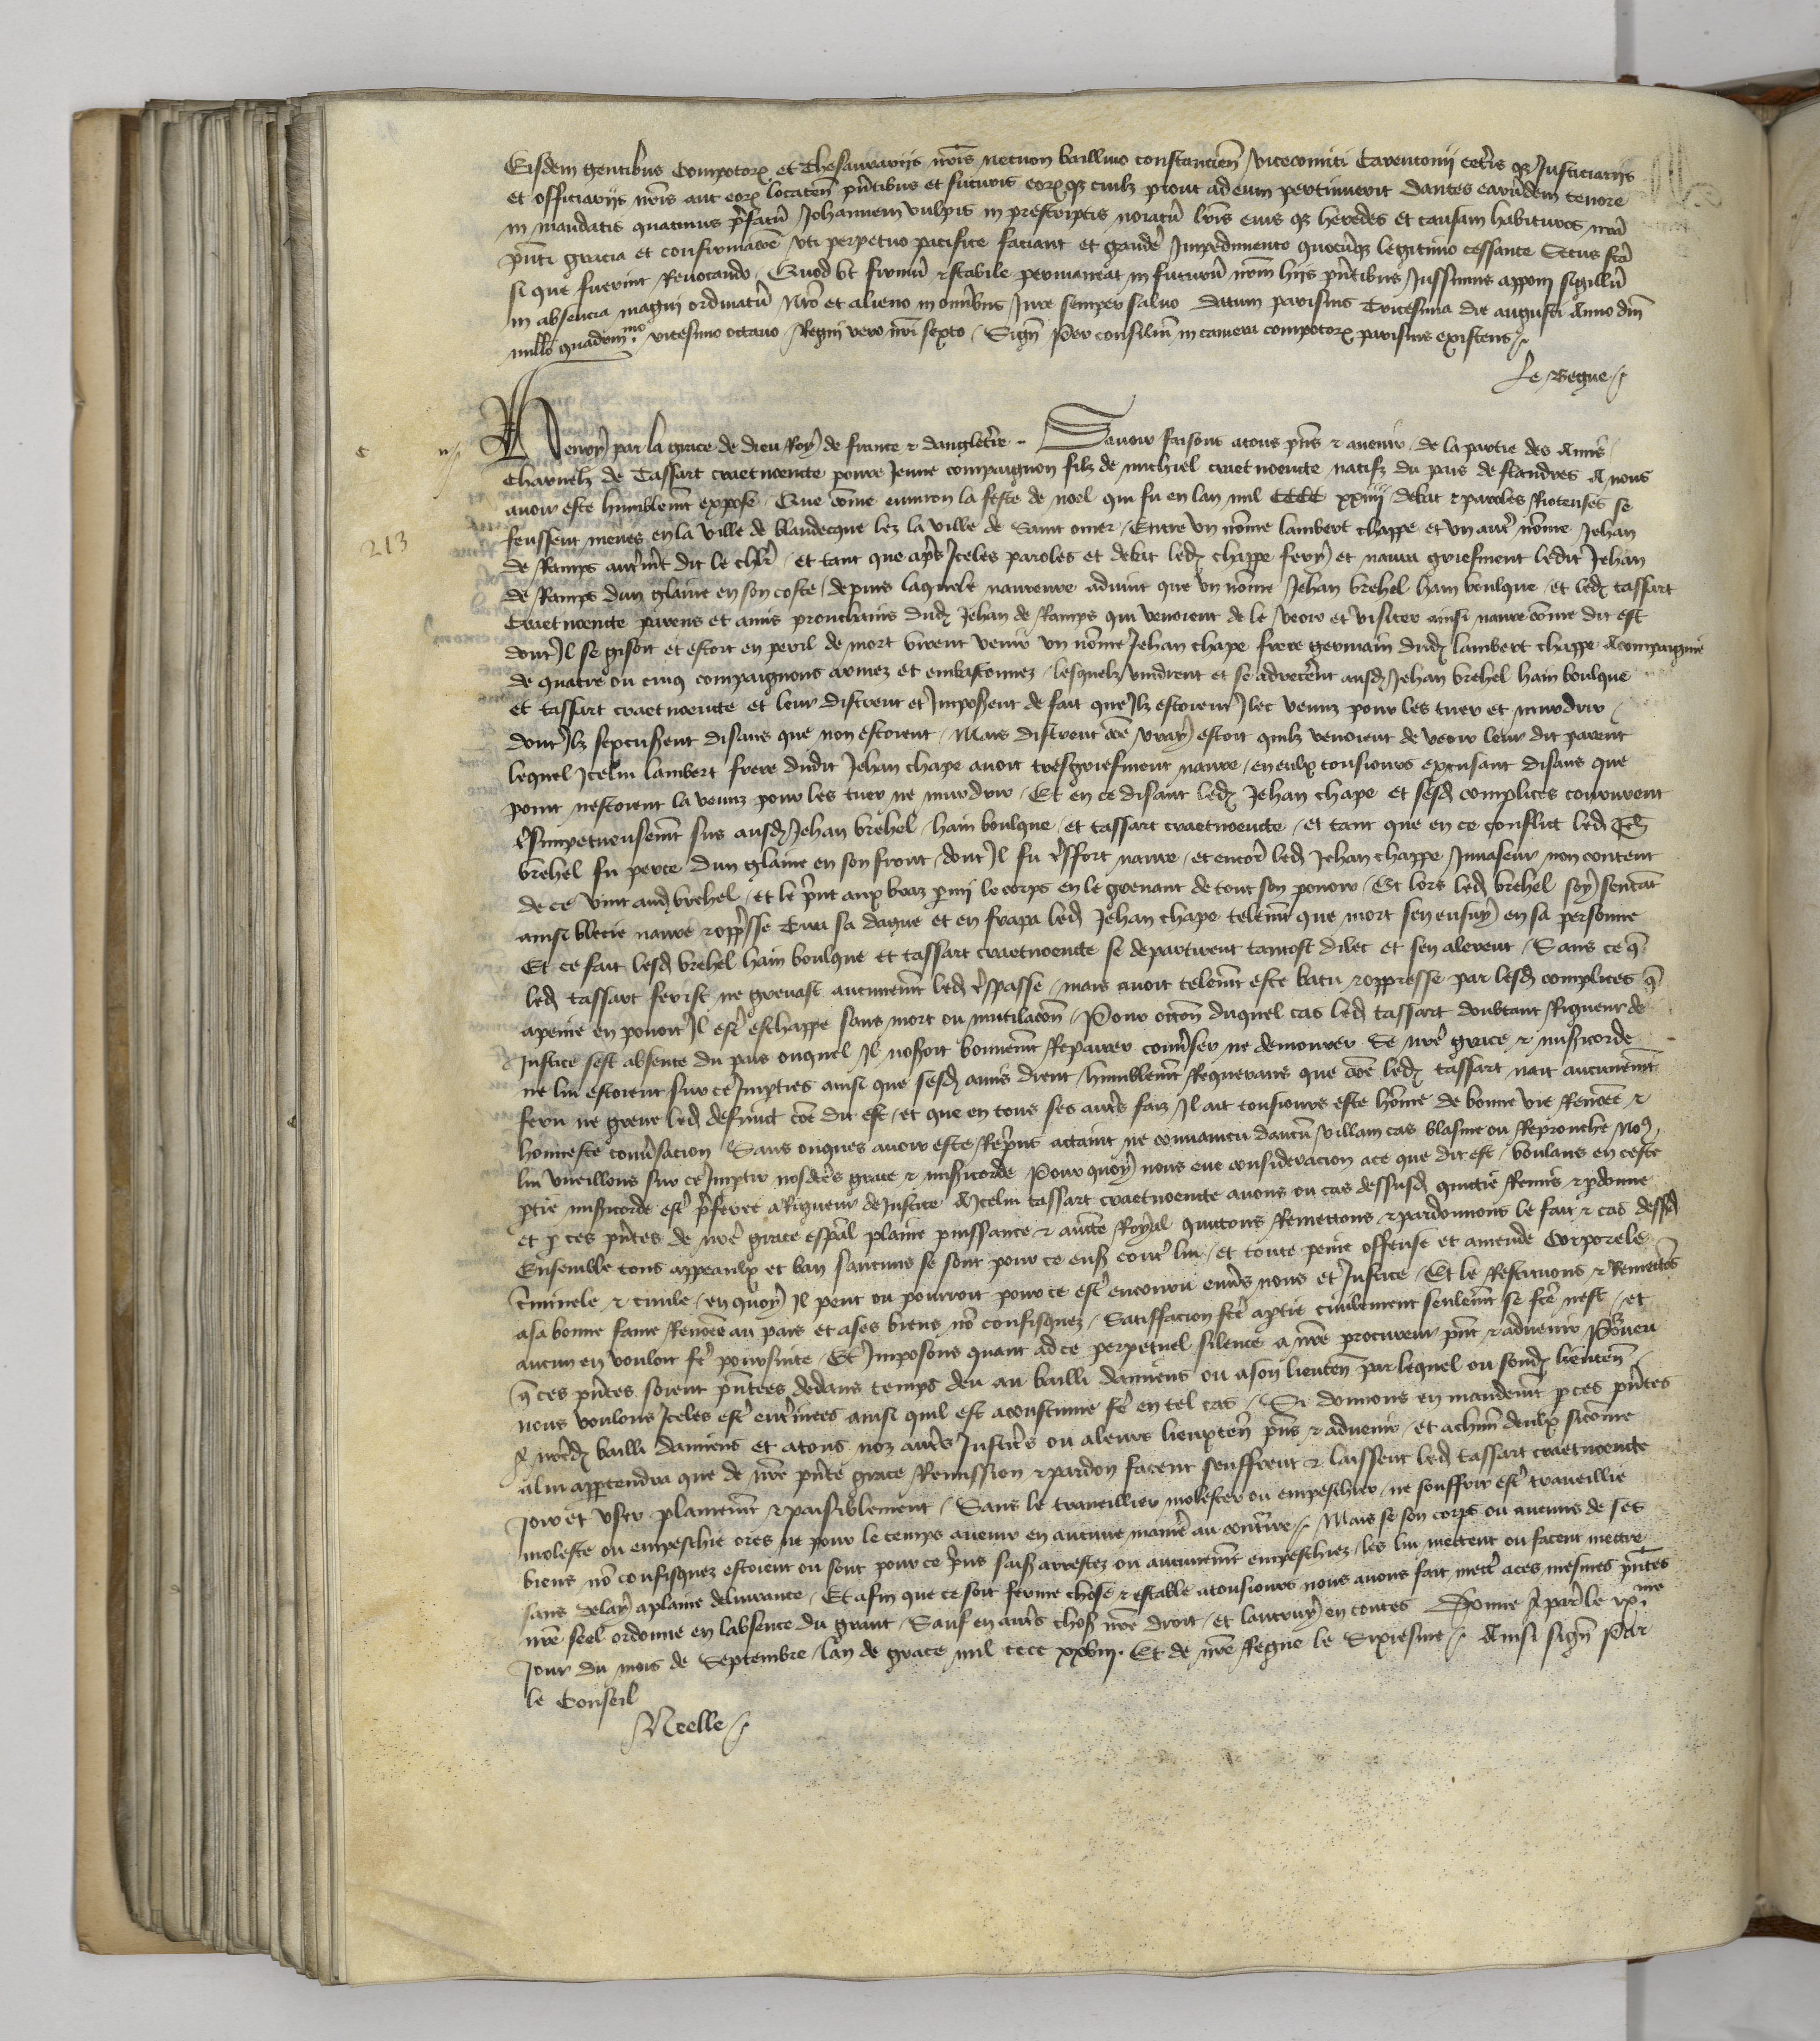 Eisdem gentibus compotorum et Thesaurariis nris necnon baillivo constancien vicecomiti Carentonii ceteris qz Justiciariis
et officiariis nris aut eorum locaten pntibus et futuris eorum qz cuilz prout ad eum pertinuerit dantes earumdem tenore
in mandatis quatinus prefatu Johannem vulpis in prescriptis noiatu heredes eius qz heredes et causam habituros nra
pnti gracia et confirmacoe uti perpetuo pacifice faciant et gaudere Impedimento quocuqz legitimo cessante Secus fca
si que fuerint Revocando Quod ut firmu et stabile permaneat in futuru nrm hiis pntibus Jussimus apponi sigillu
in absencia magni ordinatu Nro et alieno in omibus Jure semper salvo Datum parisius Tricesima die augusti Anno dni
millo quadrin.mo vicesimo octavo Regni vero nri sexto Sign Per consiliu in camera compotorum parisius existens
Le Begue
Henry par la grace de dieu Roy de france et dangleterre Savoir faisons a tous pns et avenir de la partie des Amis
charnelz de Tassart craetnoencte povre Jeune compaignon filz de michiel craetnoencte natifz du pais de flandres A nous
avoir este humblemt expose Que come environ la feste de noel qui fu en lan mil CCCC xxiiij debat et paroles Rioteuses se
feussent meues en la ville de blandecque lez la ville de Saint omer Entre un nome lambert chappe et un autre nome Jehan
de Ramps autremt dit le chlr et tant que apres Iceles paroles et debat led chappe fery et navra griefment ledit Jehan
de Ramps dun glaive en son coste depuis laquele navreure advint que un nome Jehan brehel hain boulque et led tassart
Craetnoencte parens et amis prouchains dud Jehan de Ramps qui venoient de le veoir et visiter ainsi navre come dit est
dont Il se gisoit et estoit en peril de mort virent venir un nome Jehan chape frere germain dud lambert chappe Acompaignie
de quatre ou cinq compaignons armez et embastonnez lesquelz vindrent et se adrecerent ausd Jehan brehel hain boulque
et tassart craetnoencte et leur distrent et Imposerent de fait que Ilz estoient Ilec venuz pour les tuer et murdrir
dont Ilz sexcuserent disans que non estoient Mais distrent coe vray estoit quilz venoient de veoir leur dit parent
lequel Icelui lambert frere dudit Jehan chape avoit tresgriefment navre en eulx tousiours excusant disans que
point nestoient la venuz pour les tuer ne murdrir Et en ce disant led Jehan chape et sesd complices coururent
tsimpetueusemt sus ausd Jehan brehel hain boulque et tassart craetnoencte et tant que en ce conflict led Jeh
brehel fu perce dun glaive en son front dont Il fu tsfort navre et encore led Jehan chappe Invaseur non content
de ce vint aud brehel et le print aux braz parmi le corps en le grevant de tout son povoir Et lors led brehel soy sentat
ainsi blecie navre et oppsse Tira sa dague et en frapa led Jehan chape telemt que mort sen ensuy en sa personne
Et ce fait lesd brehel hain boulque et tassart craetnoencte se departirent tantost dilec et sen alerent Sans ce q
led tassart ferist ne grevast aucunemt led tspasse mais avoit telemt este batu et oppresse par lesd complices q
a peine en povoit Il estre eschappe sans mort ou mutilacon Pour occon duquel cas led tassart doubtant Rigueur de
Justice sest absente du pais ouquel Il nosroit bonnemt Reparer converser ne demourer Se nre grace et misericorde
ne lui estoient sur ce Imparties ainsi que sesd amis dient humblemt Requerans que coe led tassart nait aucunemt
feru ne greve led defunct coe dit est et que en tous ses autres faiz Il ait tousiours este home de bonne vie Renomee et
honneste conversacion Sans onques avoir este Reprins attaint ne convaincu daucun villain cas blasme ou Reprouche Nous
lui vueillons sur ce Impartir nosdtes grace et misericorde Pour quoy nous eue consideracion a ce que dit est Voulans en ceste
partie misericorde estre preferee a Rigueur de Justice A Icelui tassart craetnoencte avons ou cas dessusd quictie Remis et pardonne
et par ces pntes de nre grace especial plaine puissance et auctte Royal quictons Remettons et pardonnons le fait et cas dessusd
Ensemble tous appeaulx et ban saucuns se sont pour ce ensuiz contre lui et toute peine offense et amende Corporele
criminele et civile en quoy Il peut ou pourroit pour ce estre encouru envers nous et Justice Et le Restituons et Remettons
a sa bonne fame Renomee au pais et a ses biens non confisquez Satiffacion fcte a partie civilement seulemt se fcte nest et
aucun en vouloit fe poursuite Et Imposons quant a ce perpetuel silence a nre procureur pnt et advenir Pourveu
q ces pntes soient pntees dedans temps deu au bailli damiens ou a son lieuten par lequel ou sond lieuten
nous voulons Iceles estre enterinees ainsi quil est acoustume fe en tel cas Si donnons en mandemt par ces pntes
A nred bailli damiens et a tous noz autres Justiciers ou a leurs lieuxten pns et advenir et a chun deulx sicome
a lui appartendra que de nre pnte grace Remission et pardon facent seuffrent et laissent led tassart craetnoencte
Joir et user plainemt et paisiblement Sans le traveillier molester ou empeschier ne souffrir estre traveillie
moleste ou empeschie ores ne pour le temps avenir en aucune maniere au contraire Mais se son corps ou aucuns de ses
biens non confisquez estoient ou sont pour ce prins saisiz arrestez ou aucunemt empeschiez les lui mettent ou facent mettre
sans delay a plaine delivrance Et afin que ce soit ferme chose et estable a tousiours nous avons fait mettre a ces mesmes pntes
nre seel ordonne en labsence du grant Sauf en autres choses nre droit et lautruy en toutes Donne A paris le xv.me
Jour du mois de Septembre lan de grace mil CCCC xxviij. Et de nre Regne le Sixiesme Ainsi signe Par
le Conseil
Neelle
213